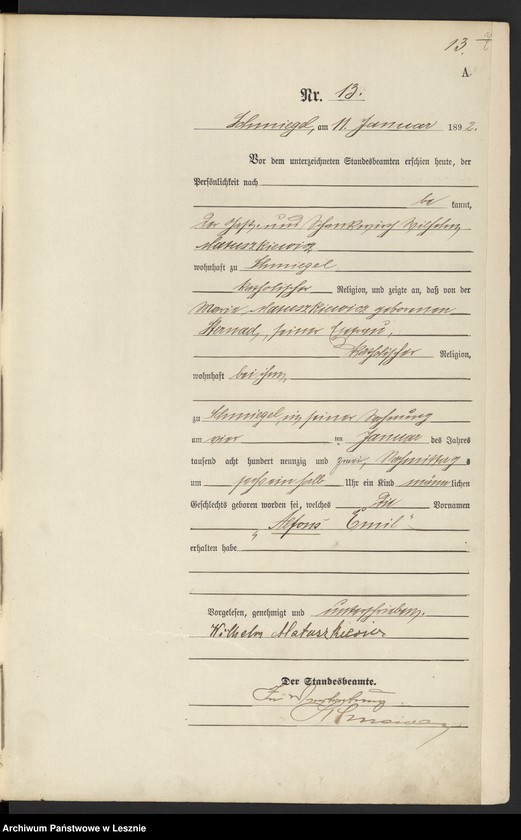 13.
A.
Nr. 13.
Schmiegel, am 11. Januar 1892.
Vor dem unterzeichneten Standesbeamten erschien heute, der
Persönlichkeit nach
be kannt,
der Gast- und Schankwirth Wilhelm
Matuszkiewicz
wohnhaft zu Schmiegel
katholischer Religion, und zeigte an, daß von der
Maria Matuszkiewicz geborenen
seiner Ehefrau,
katholischer Religion,
wohnhaft bei ihm,
zu Schmiegel, in seiner Wohnung
am vier ten Januar des Jahres
tausend acht hundert neunzig und zwei, Nachmittag s
um Uhr ein Kind männlichen
Geschlechts geboren worden sei, welches die Vornamen
„Alfons Emil"
erhalten habe
Vorgelesen, genehmigt und unterschrieben.
Wilhelm Matuszkiewicz
Der Standesbeamte.
In Vertretung
Archiwum Państwowe w Lesznie